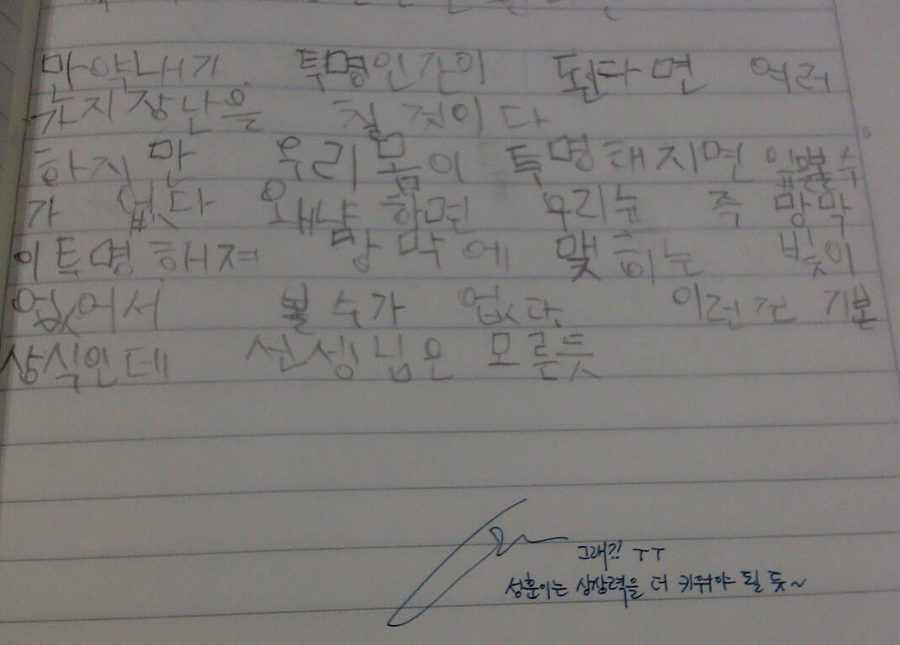 만약내가 투명인간이 된다면 여러
가지장난을 칠 것이다
하지만 우리몸이 투명해지면 볼수
가 없다 왜냠하면 우리눈 즉 망막
이투명해져 망막에 맺히는 빛이
없어서 볼수가 없다. 이런건 기본
상식인데 선생님은 모른듯
그래?! ㅜㅜ
성훈이는 상상력을 더 키워야 될 듯~